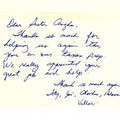 Dear Sister Angela,
Thanks so much for
helping us again this
year on our taxes prep
We really appreciated your
great job and help!
Thank so much again
Joy, Jim, Charles,